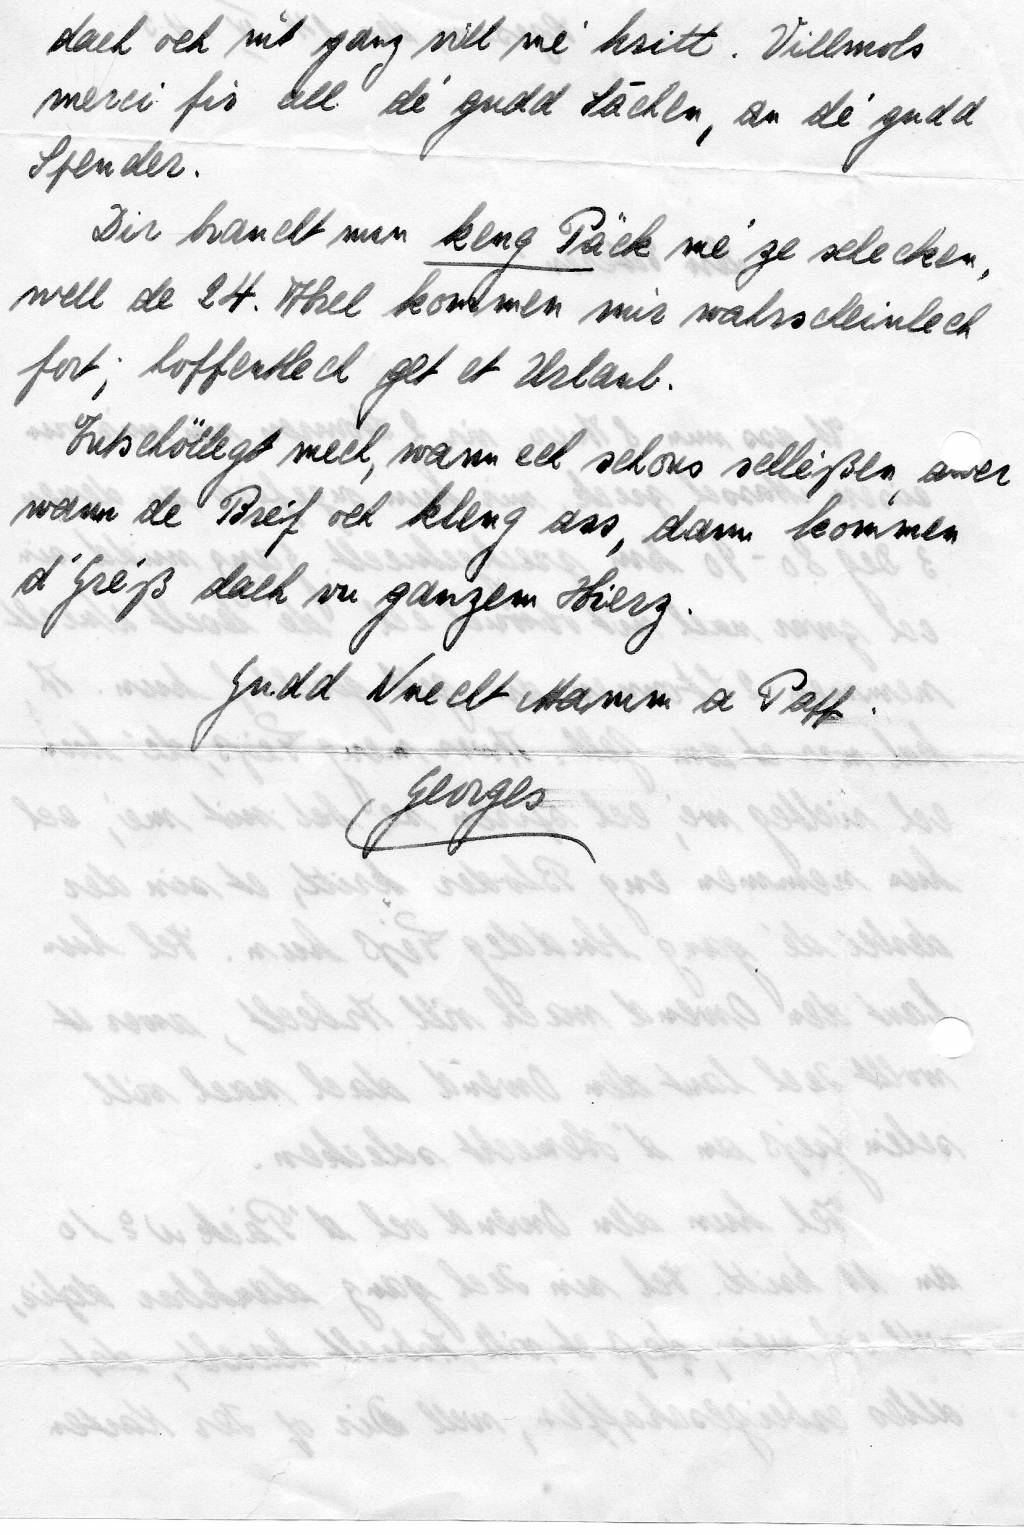 dach och nit ganz vill mé kritt. Villmols
merci fir all dé gudd Sächen, an dé gudd
Spender.
Dir braucht mun keng Päck mé ze schecken,
well de 24. Abrel kommen mir wahrscheinlech
fort; hoffentlech get et Urlaub.
Entschöllegt mech, wann ech schons schleißen, awer
wann de Breif och kleng ass, dann kommen
d'Gréiß dach vu ganzem Hierz.
Gudd Nuecht Mamm a Papp.
Georges